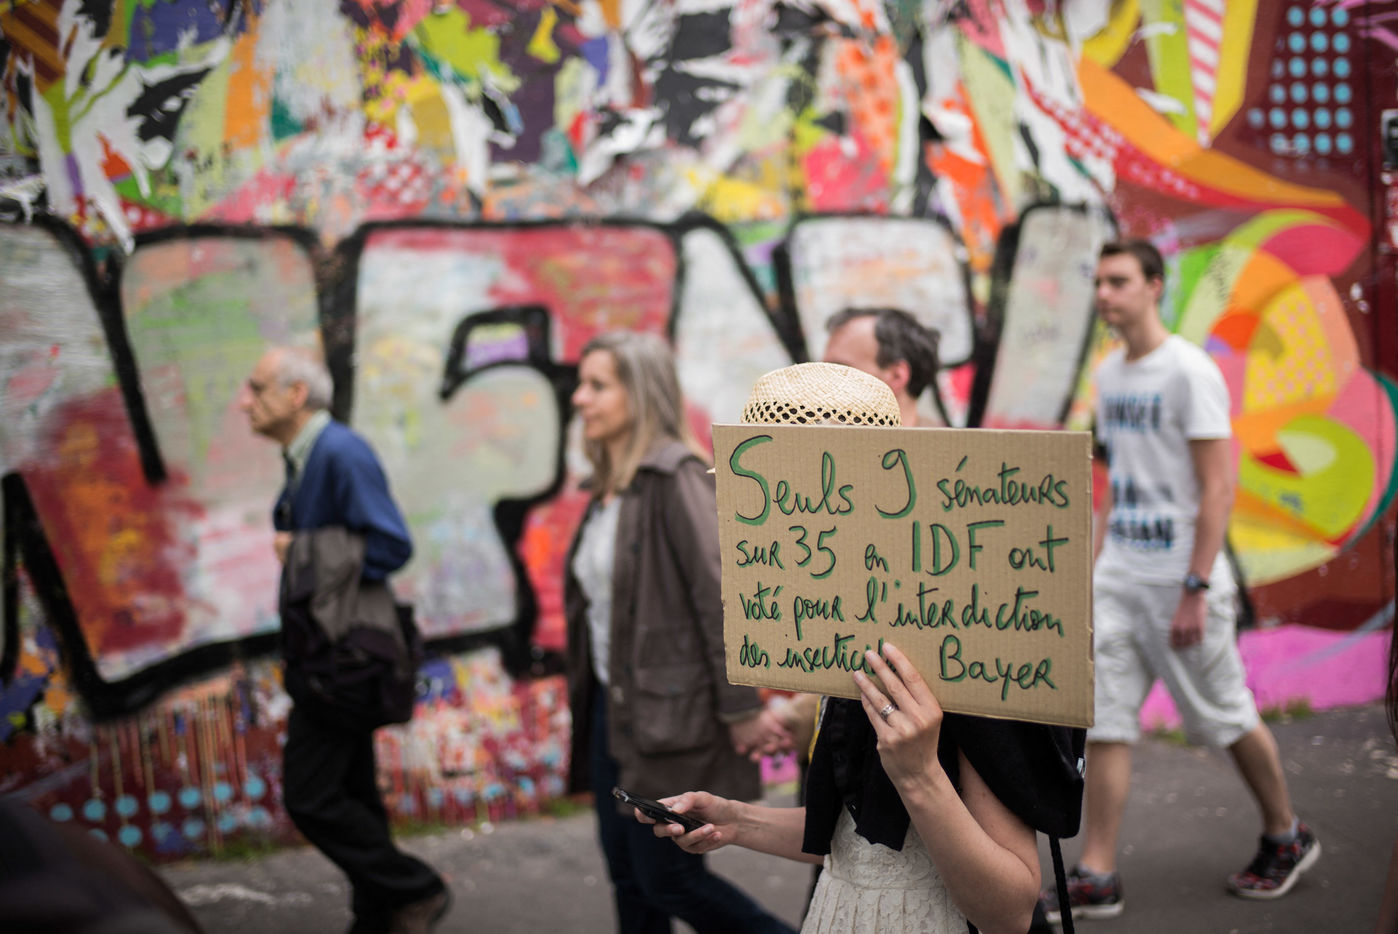 Seuls 9 sénateurs
sur 35 en IDF ont
voté pour l'interdiction
des insectici Bayer